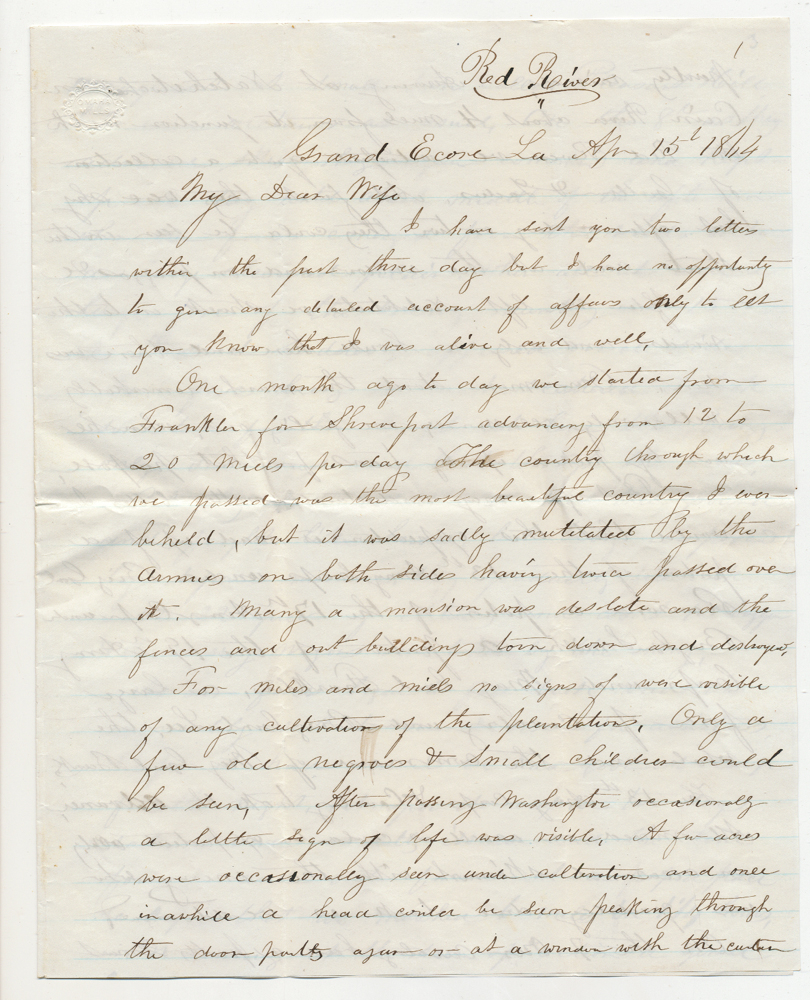 1
Red River
"
Grand Ecore La Apr 15t 1864
My Dear Wife
I have sent you two letters
within the past three day but I had no opportunity
to give any detailed account of affairs only to let
you know that I was alive and well,
One month ago to day we started from
Franklin for Shreveport advancing from 12 to
20 miels per day The country through which
we passed was the most beautiful country I ever
beheld, but it was sadly mutelated by the
armies on both sides having twice passed over
it. Many a mansion was deslate and the
fences and out buildings torn down and destroyed,
For miles and miels no signs of were visible
of any cultivation of the plantations, Only a
few old negroes & small children could
be seen, After passing Washington occasionally
a little sign of life was visible, A few acres
were occasionally seen under cultivation and once
inawhile a head could be seen peaking through
the door partly ajar or at a window with the curtain